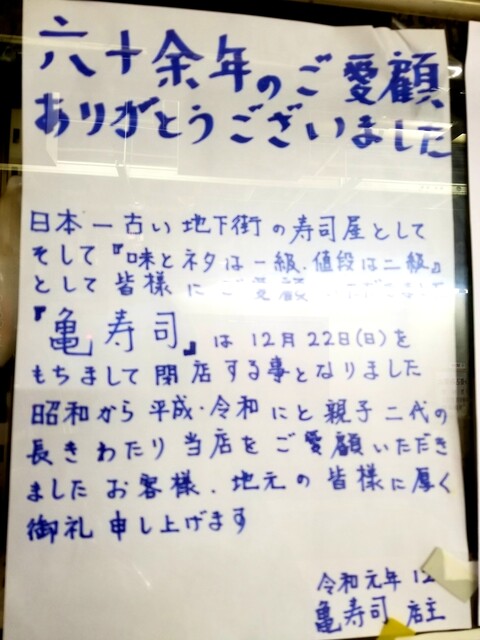 六十余年のご愛顧、
ありがとうございました
日本一古い地下街の寿司屋として
そして『味とネタは一級、値段は二級』
として皆様にご愛顧いただきました
『亀寿司』は12月22日(日)を
もちまして閉店する事となりました
昭和から平成・令和にと親子二代の
長きわたり当店をご愛顧いただき
ましたお客様、地元の皆様に厚く
御礼申し上げます
令和元年 12
亀寿司 店主